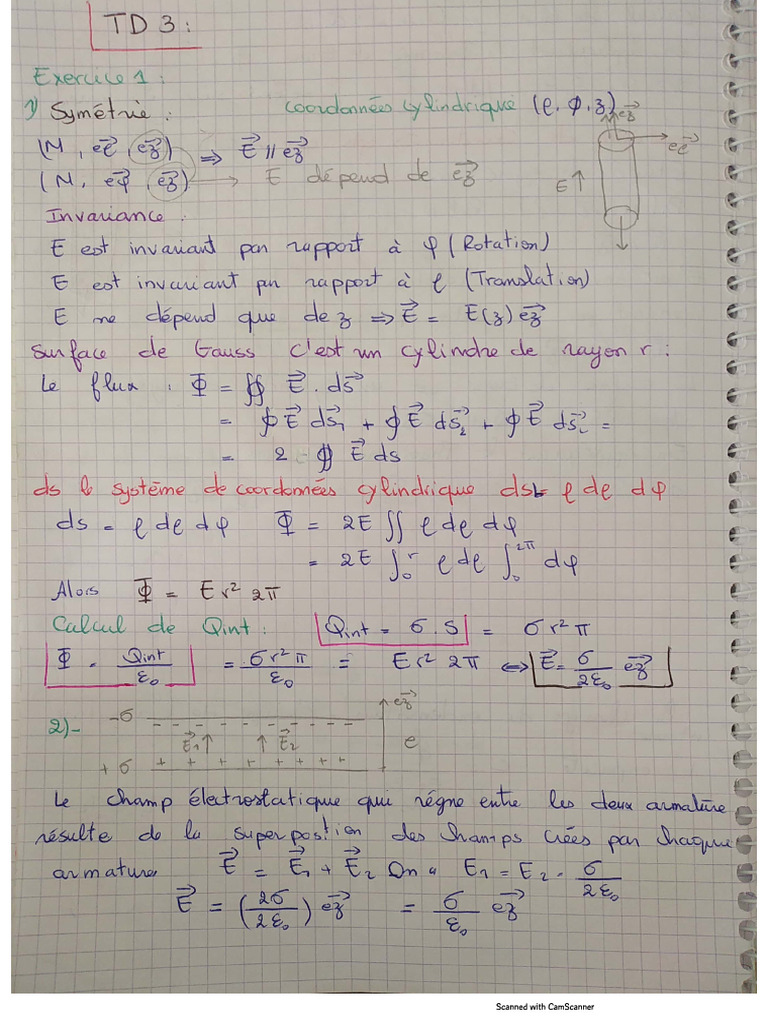 TD 3 :
Exercice 1 :
1) Symétrie : coordonnées cylindrique (ρ, φ, z)
(M, eρ⃗, ez⃗) ⇒ E⃗ // ez⃗
(M, eφ⃗, ez⃗) → E dépend de ez⃗
ez⃗
eρ⃗
E↑
Invariance :
E est invariant par rapport à φ (Rotation)
E est invariant par rapport à ρ (Translation)
E ne dépend que de z ⇒ E⃗ = E(z) ez⃗
Surface de Gauss c'est un cylindre de rayon r :
Le flux : Φ = ∯ E⃗ . ds⃗
= ∮ E⃗ ds₁⃗ + ∮ E⃗ ds₂⃗ + ∮ E⃗ dsL⃗ =
= 2 ∯ E⃗ ds
ds le système de coordonnées cylindrique ds = ρ dρ dφ
ds = ρ dρ dφ Φ = 2E ∬ ρ dρ dφ
= 2E ∫₀^r ρ dρ ∫₀^2π dφ
Alors Φ = E r² 2π
Calcul de Qint : Qint = σ . S = σ r² π
Φ = Qint/ε₀ = σ r² π/ε₀ = E r² 2π ⇔ E⃗ = σ/2ε₀ ez⃗
2)- -σ - - - - - - - - - ez⃗
E₁⃗ ↑ ↑ E₂⃗ e
+ σ + + + + + + + +
Le champ électrostatique qui règne entre les deux armature
résulte de la superpostion des champs crées par chaque
armatures E⃗ = E₁⃗ + E₂⃗ On a E₁ = E₂ = σ/2ε₀
E⃗ = (2σ/2ε₀) ez⃗ = σ/ε₀ ez⃗
Scanned with CamScanner